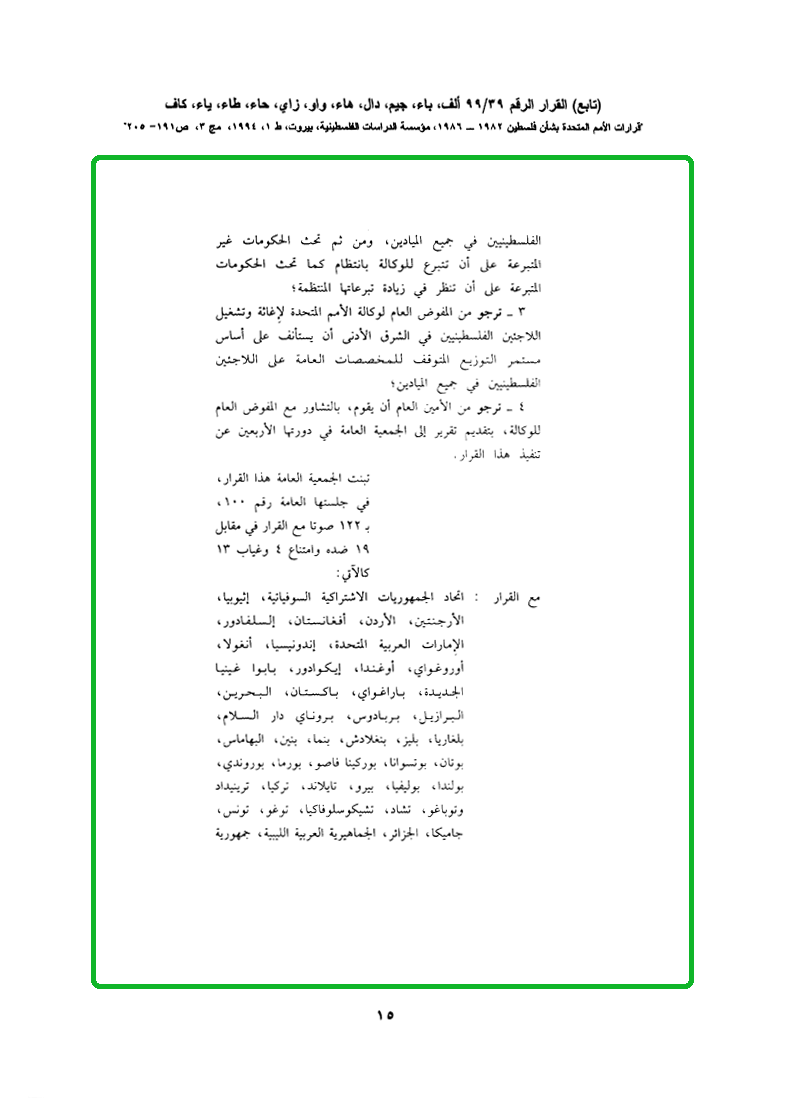 (تابع) القرار الرقم ٩٩/٣٩ ألف، باء، جيم، دال، هاء، واو، زاي، حاء، طاء، ياء، كاف
"قرارات الأمم المتحدة بشأن فلسطين ١٩٨٢ ــ ١٩٨٦، مؤسسة الدراسات الفلسطينية، بيروت، ط ١، ١٩٩٤، مج ٣، ص١٩١- ٢٠٥"
الفلسطينيين في جميع الميادين، ومن ثم تحث الحكومات غير
المتبرعة على أن تتبرع للوكالة بانتظام كما تحث الحكومات
المتبرعة على أن تنظر في زيادة تبرعاتها المنتظمة؛
٣ ـ ترجو من المفوض العام لوكالة الأمم المتحدة لإغاثة وتشغيل
اللاجئين الفلسطينيين في الشرق الأدنى أن يستأنف على أساس
مستمر التوزيع المتوقف للمخصصات العامة على اللاجئين
الفلسطينيين في جميع الميادين؛
٤ ـ ترجو من الأمين العام أن يقوم، بالتشاور مع المفوض العام
للوكالة، بتقديم تقرير إلى الجمعية العامة في دورتها الأربعين عن
تنفيذ هذا القرار.
تبنت الجمعية العامة هذا القرار،
في جلستها العامة رقم ١٠٠،
بـ ١٢٢ صوتا مع القرار في مقابل
١٩ ضده وامتناع ٤ وغياب ١٣
كالآتي:
مع القرار : اتحاد الجمهوريات الاشتراكية السوفياتية، إثيوبيا،
الأرجنتين، الأردن، أفغانستان، إلسلفادور،
الإمارات العربية المتحدة، إندونيسيا، أنغولا،
أوروغواي، أوغندا، إيكوادور، بابوا غينيا
الجديدة، باراغواي، باكستان، البحرين،
البرازيل، بربادوس، بروناي دار السلام،
بلغاريا، بليز، بنغلادش، بنما، بنين، البهاماس،
بوتان، بوتسوانا، بوركينا فاصو، بورما، بوروندي،
بولندا، بوليفيا، بيرو، تايلاند، تركيا، ترينيداد
وتوباغو، تشاد، تشيكوسلوفاكيا، توغو، تونس،
جاميكا، الجزائر، الجماهيرية العربية الليبية، جمهورية
١٥